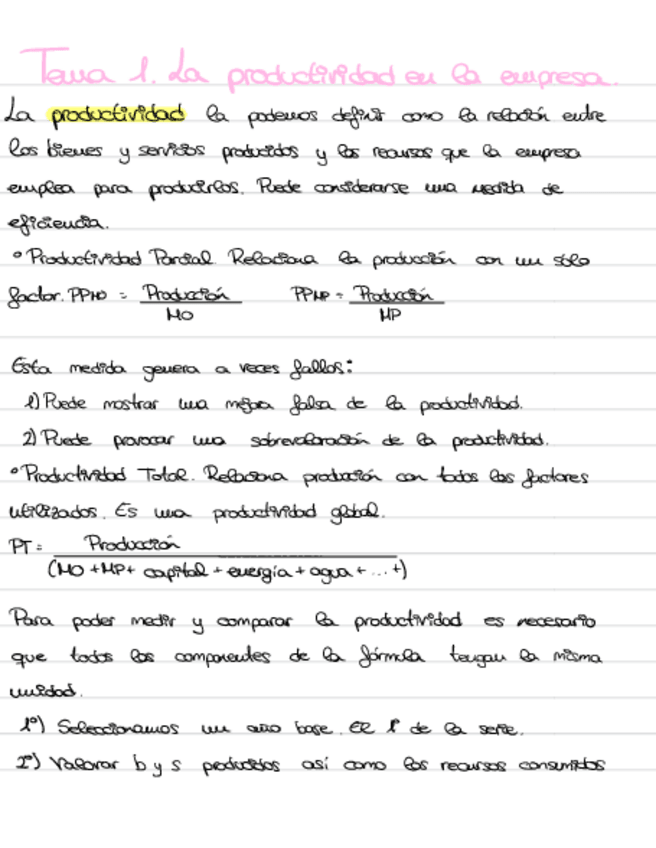 Tema 1. La productividad en la empresa.
La productividad la podemos definir como la relación entre
los bienes y servicios producidos y los recursos que la empresa
emplea para producirlos. Puede considerarse una medida de
eficiencia.
° Productividad Parcial. Relaciona la producción con un sólo
factor. PPMO = Producción / MO PPMP = Producción / MP
Esta medida genera a veces fallos:
1) Puede mostrar una mejora falsa de la productividad.
2) Puede provocar una sobrevaloración de la productividad.
° Productividad Total. Relaciona producción con todos los factores
utilizados. Es una productividad global.
PT = Producción
(MO + MP + capital + energía + agua + ... +)
Para poder medir y comparar la productividad es necesario
que todos los componentes de la fórmula tengan la misma
unidad.
1º) Seleccionamos un año base. El 1º de la serie.
2º) Valorar b y s producidos así como los recursos consumidos